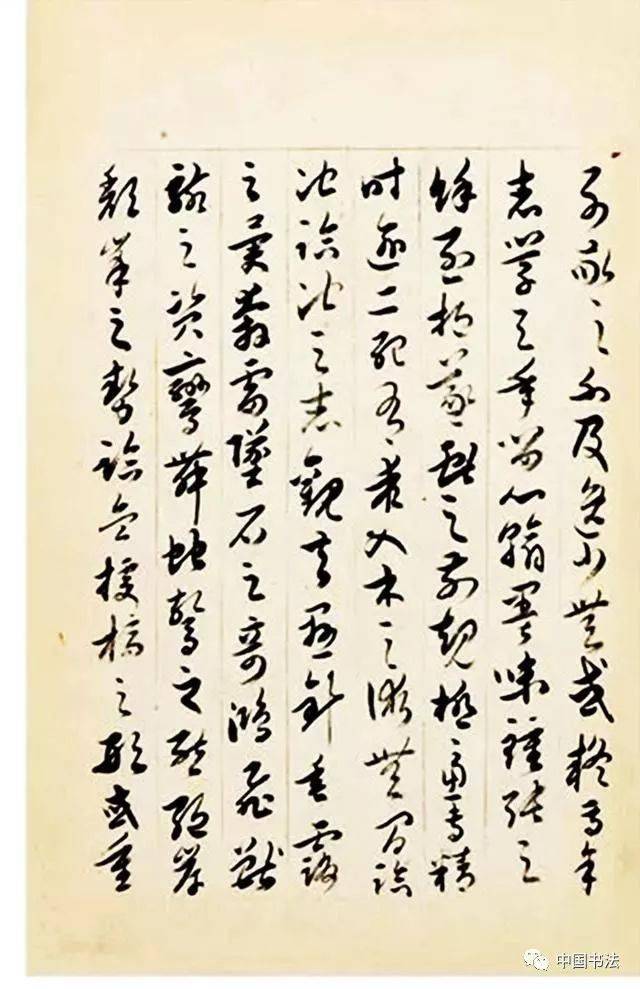 子敬之不及逸少無或疑焉余
志學之年留心翰墨味鍾張之
餘烈挹羲獻之前規極慮專精
時逾二紀有乖入木之術無間臨
池臨池之志觀夫懸針垂露
之異奔雷墜石之奇鴻飛獸
駭之資鸞舞蛇驚之態絕岸
頹峯之勢臨危據槁之形或重
中国书法